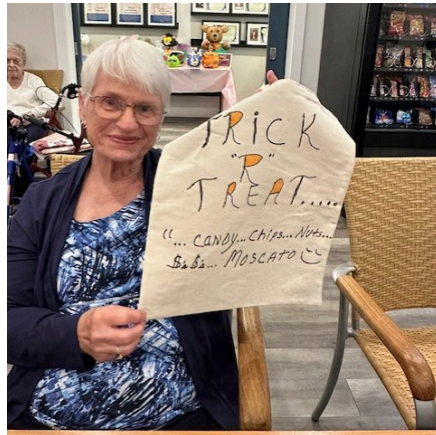 TRICK
"R"
TREAT.....
"... CANDY... Chips... Nuts...
$s $s... MOSCATO